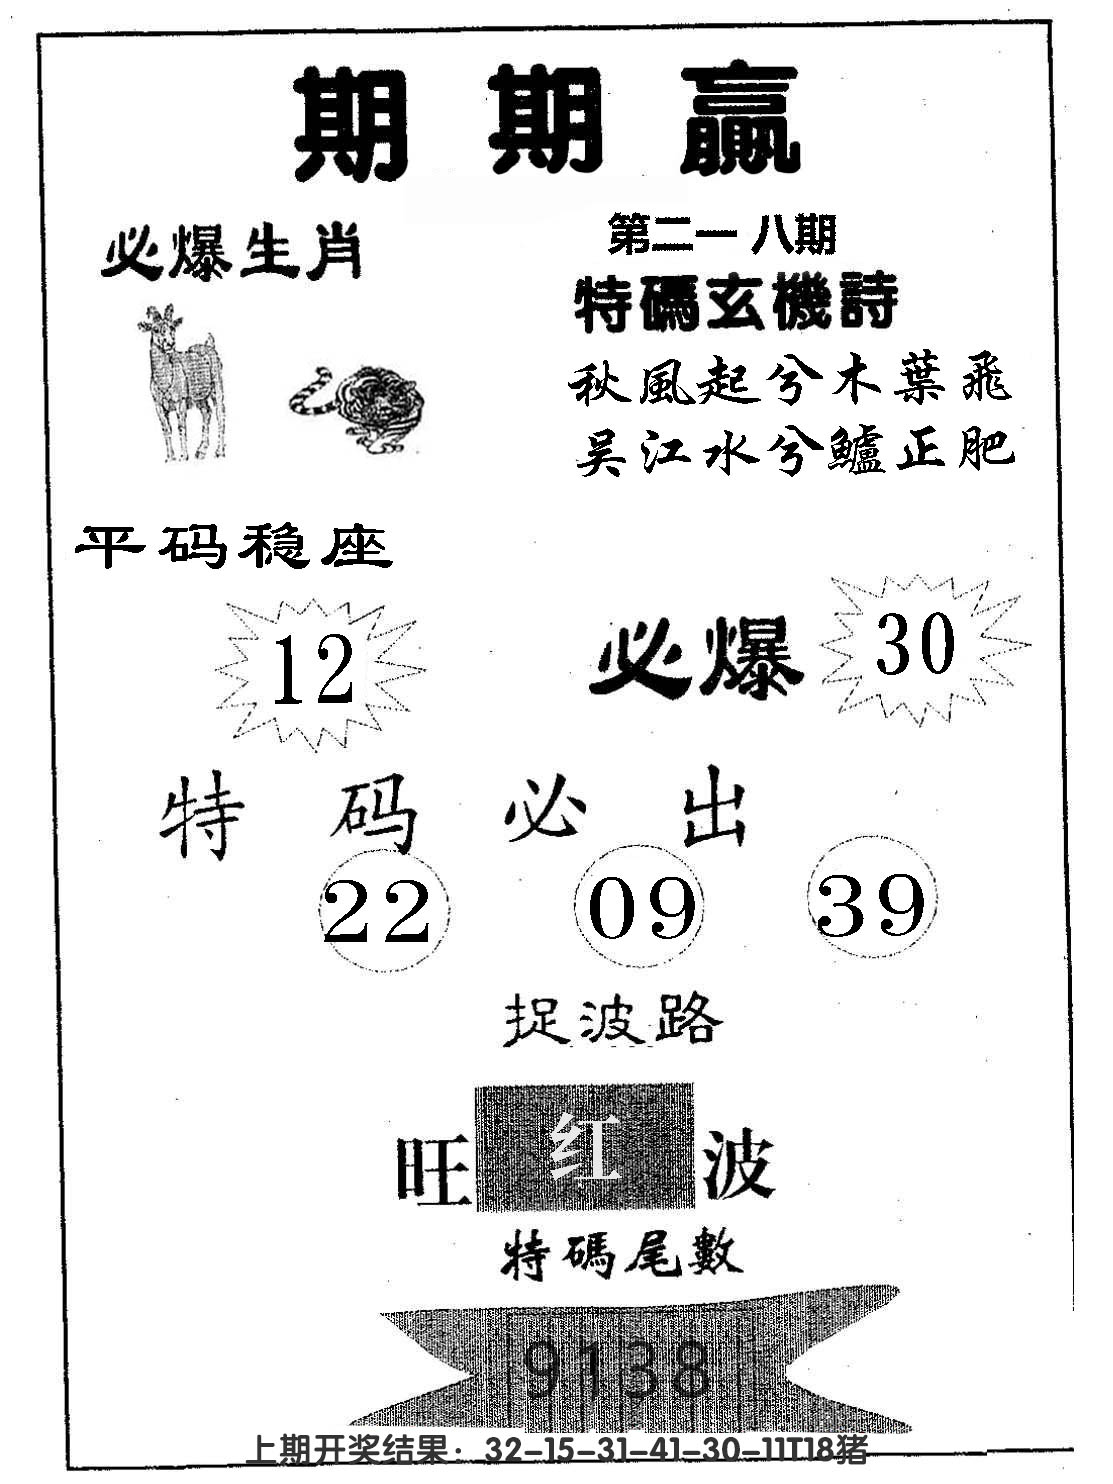 期期贏
必爆生肖
第二一八期
特碼玄機詩
秋風起兮木葉飛
吴江水兮鱸正肥
平码稳座
12
必爆 30
特码必出
22 09 39
捉波路
旺 红 波
特碼尾數
9138
上期开奖结果：32-15-31-41-30-11T18猪